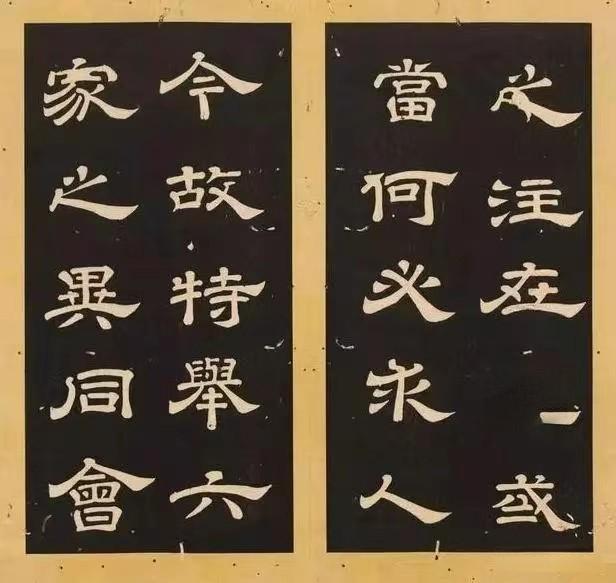 之注在或
當何必求人
今故特舉六
家之異同會